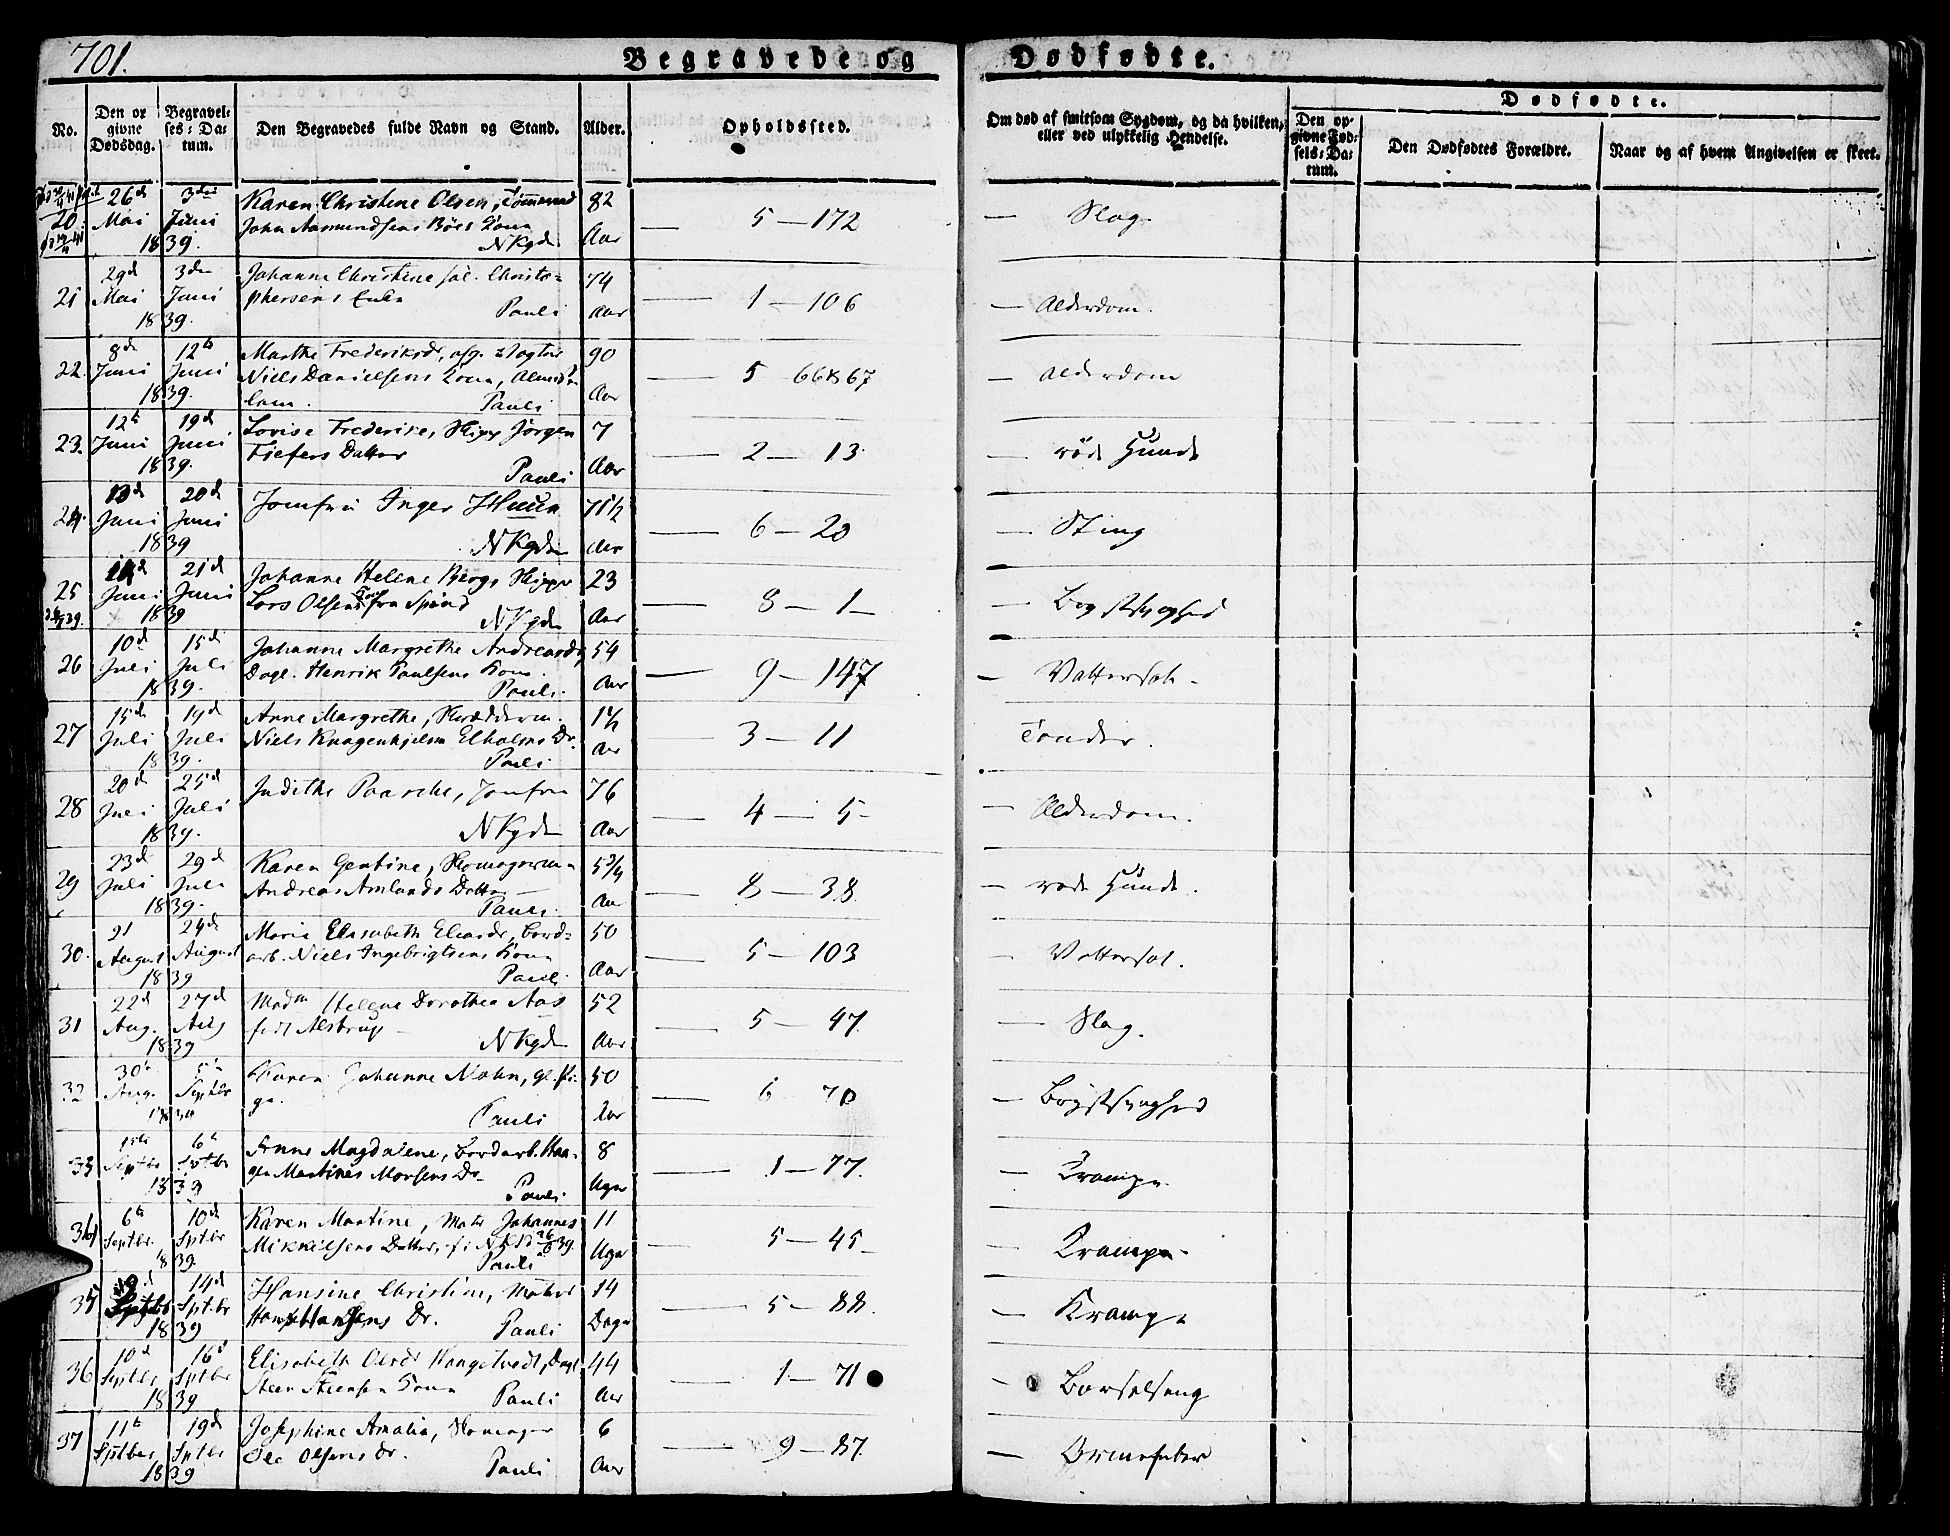 701.
Begravede og Dødfødte.
No.
Den opgivne Dødsdag.
Begravelses-Datum.
Den Begravedes fulde Navn og Stand.
Alder.
Opholdssted.
Om død af smitsom Sygdom, og da hvilken, eller ved ulykkelig Hendelse.
Dødfødte.
Den opgivne Fødsels-Datum.
Den Dødfødtes Forældre.
Naar og af hvem Angivelsen er skeet.
20. 26d Mai 3die Juni 1839. Karen Christine Olsen, Tømmermd
John Aamundsens Bøes Kone
NKgde 82 Aar — 5 — 172 — Slag.
21 29d Mai 3die Juni 1839. Johanne Christine sal. Christo-
phersens Enke
Pauli 74 Aar — 1 — 106 — Alderdom.
22. 8d Juni 12te Juni 1839. Marthe Frederiksd., afg. Vogter
Niels Danielsens Kone,
lem. Pauli 90 Aar — 5 — 66 & 67 — Alderdom
23. 12te Juni 19d Juni 1839. Lovise Frederike, Skipp Jørgen
Fiefers Datter
Pauli 7 Aar — 2 — 13. — røde Hunde
24. Juni 20d Juni 1839 Jomfru Inger Huun
NKgde 71 1/2 Aar — 6 — 20 — Sting
25 14d Juni 21d Juni 1839 Johanne Helene Bergs Skipper
Lars Olsens Kone fra Spind
NKgde 23 Aar — 8 — 1 — — Brystsyghed
26 10d Juli 15d Juli 1839. Johanne Margrethe Andreasd.,
Dagl. Henrik Paulsens Kone.
Pauli. 54 Aar — 9 — 147 — Vattersot.
27 15d Juli 19d Juli 1839. Anne Margrethe, Skrædderm.
Niels Knagenhjelm Elholms Dr.
Pauli 1 1/2 Aar 3 — 11 Tænder.
28 20d Juli 25d Juli 1839. Judithe Paasche, Jomfru
NKgde 76 Aar — 4 — 5 — Alderdom.
29 23d Juli 29d Juli 1839. Karen Gentine, Skomagerm
Andreas Amlands Datter —
Pauli. 5 3/4 Aar — 8 — 38. — røde Hunde.
30. 21 August 24d August 1839 Marie Elisabeth Eliasdr, Bord-
arb. Niels Ingebrigtsens Kone
Pauli. 50 Aar — 5 — 103 — Vattersot.
31 22d Aug. 27d Aug 1839 Madm Helene Dorothea Aas
født Alstrup —
NKgde 52 Aar — 5 — 47. — Slag.
32 30te Aug. 5te Septbr 1839 Karen Johanne Mohn, gl. Pi-
ge.
Pauli 50 Aar — 6 — 70 — Brystsyghed
33 1ste Septbr 6te Sptbr 1839 Anne Magdalene, Bordarb. Haa-
gen Martines Morsens Dr
Pauli 8 Uger — 1 — 77. — Krampe.
34 6te Septbr. 10d Sptbr 1839. Karen Martine, Matr Johannes
Mikkelsens Datter, 39.
Pauli 11 Uger — 5 — 45 — — Krampe.
35 Septbr 14d Sptbr 1839 Hansine Christine, Matros
Hans Hansens Dr.
Pauli 14 Dage — 5 — 88. — Krampe
36 10d Septbr 16d Sptbr 1839 Elisabeth Olsdr Haugetvedt, Dagl
Steen Steensen Kone
Pauli 44 Aar — 1 — 71 — Barselseng
37 11te Sptber 19d Sptbr 1839 Josephine Amalia, Skomager
Ole Olsens Dr.
Pauli 6 Aar — 9 — 87. — Ormefeber